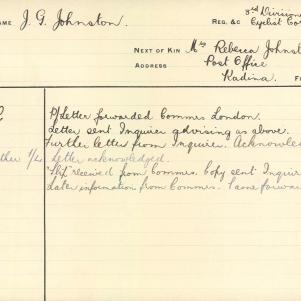 AME J. G. Johnston.
REG. &c 3rd Division
Cyclist Co
NEXT OF KIN Mrs Rebecca Johnst
ADDRESS Post Office
Kadina.
P/Letter forwarded Commrs London.
Letter sent Inquirer advising as above.
Further letter from Inquirer. Acknowle
ther Letter acknowledged.
received from Commrs. Copy sent Inquir
Later information from Commrs. Same forwar